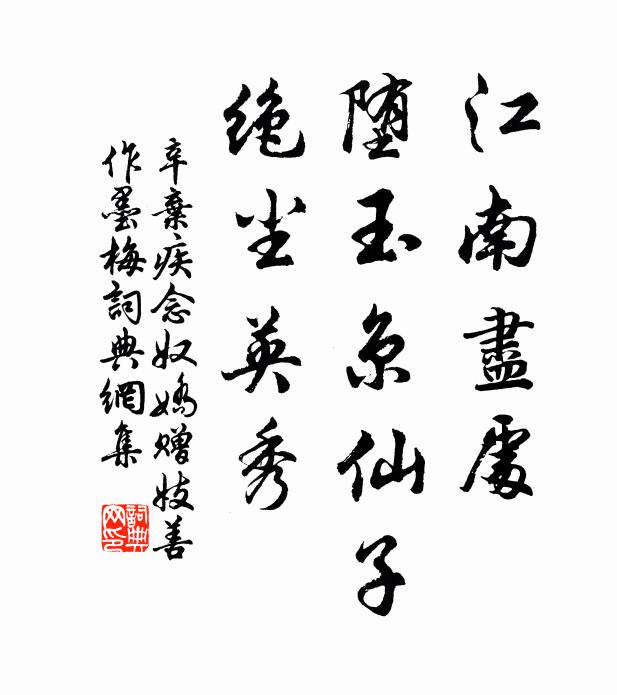 江南盡處
堕玉京仙子
絶尘英秀
辛棄疾念奴嬌赠妓善
作墨梅詞典網集
詞典网印